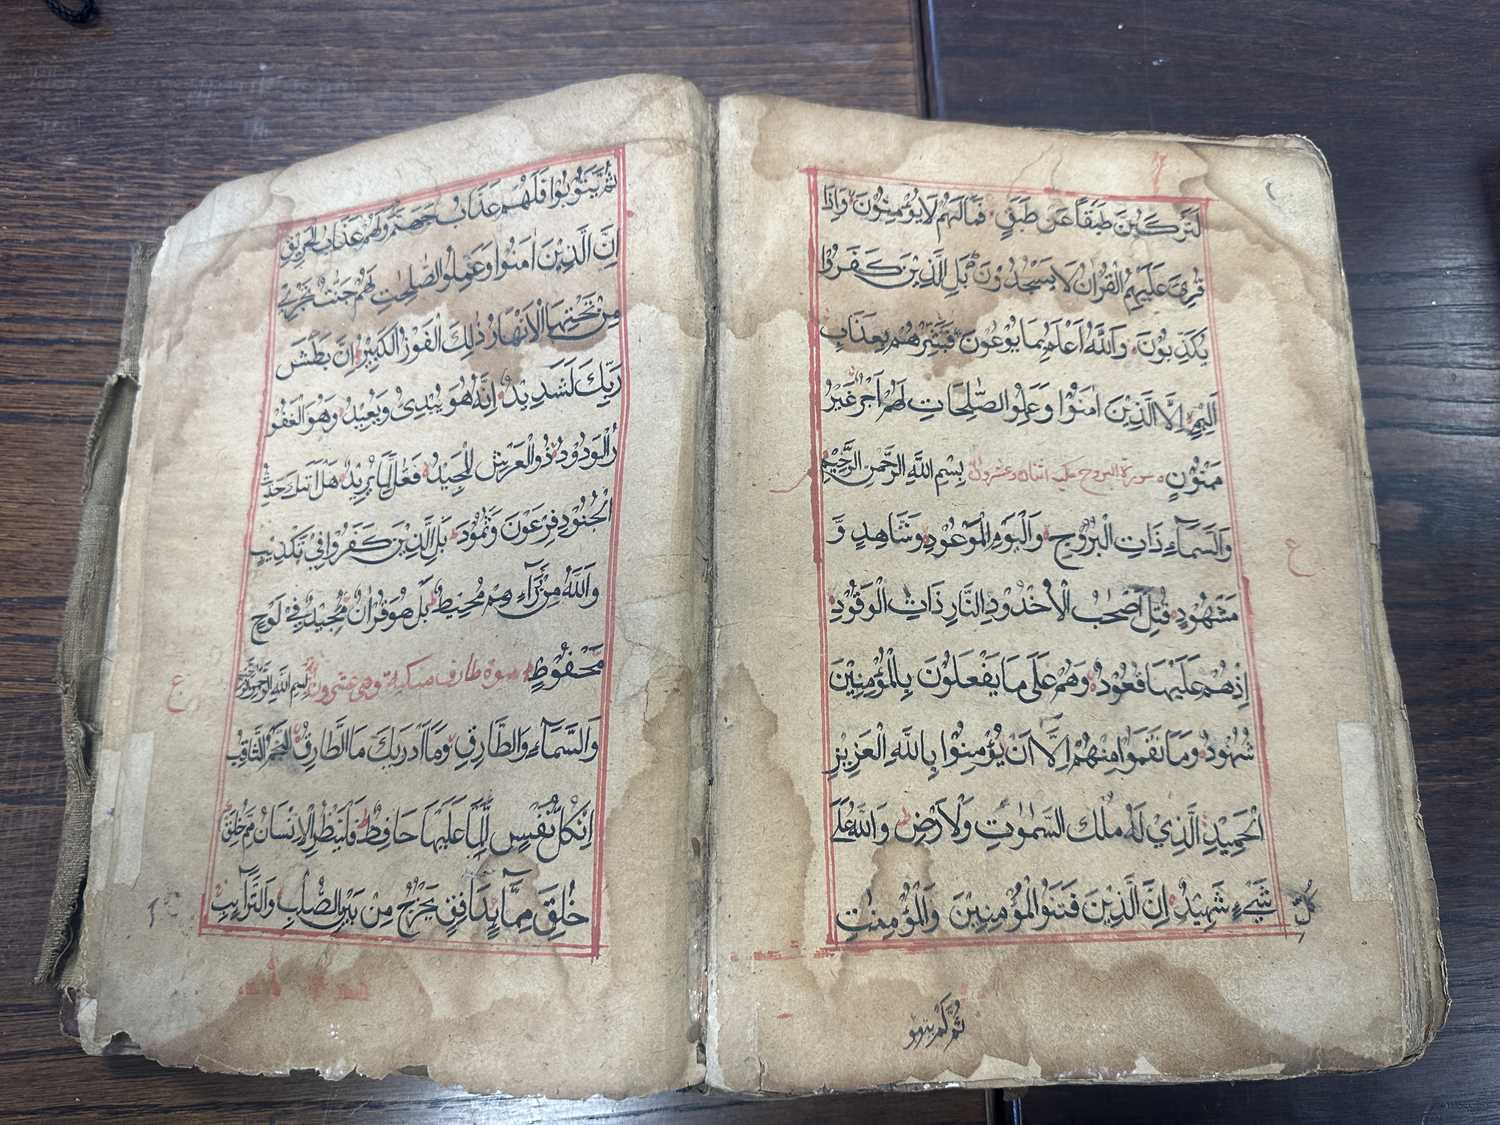 لَتَرْكَبُنَّ طَبَقًا عَنْ طَبَقٍ فَمَا لَهُمْ لَا يُؤْمِنُونَ وَإِذَا
قُرِئَ عَلَيْهِمُ الْقُرْآنُ لَا يَسْجُدُونَ بَلِ الَّذِينَ كَفَرُوا
يُكَذِّبُونَ وَاللَّهُ أَعْلَمُ بِمَا يُوعُونَ فَبَشِّرْهُمْ بِعَذَابٍ
أَلِيمٍ إِلَّا الَّذِينَ اٰمَنُوا وَعَمِلُوا الصّٰلِحَاتِ لَهُمْ أَجْرٌ غَيْرُ
مَمْنُونٍ سورة البروج اثنان وعشرون بِسْمِ اللَّهِ الرَّحْمٰنِ الرَّحِيمِ
وَالسَّمَاءِ ذَاتِ الْبُرُوجِ وَالْيَوْمِ الْمَوْعُودِ وَشَاهِدٍ وَّ
مَشْهُودٍ قُتِلَ أَصْحٰبُ الْأُخْدُودِ النَّارِ ذَاتِ الْوَقُودِ
إِذْ هُمْ عَلَيْهَا قُعُودٌ وَهُمْ عَلَى مَا يَفْعَلُونَ بِالْمُؤْمِنِينَ
شُهُودٌ وَمَا نَقَمُوا مِنْهُمْ إِلَّا أَنْ يُؤْمِنُوا بِاللَّهِ الْعَزِيزِ
الْحَمِيدِ الَّذِي لَهُ مُلْكُ السَّمٰوٰتِ وَلْأَرْضِ وَاللَّهُ عَلَى
كُلِّ
شَيْءٍ شَهِيدٌ إِنَّ الَّذِينَ فَتَنُوا الْمُؤْمِنِينَ وَالْمُؤْمِنٰتِ
ثُمَّ لَمْ يتوبو
ع
ثُمَّ يَتُوبُوا فَلَهُمْ عَذَابُ جَهَنَّمَ وَلَهُمْ عَذَابُ الْحَرِيقِ
إِنَّ الَّذِينَ اٰمَنُوا وَعَمِلُوا الصّٰلِحٰتِ لَهُمْ جَنّٰتٌ تَجْرِي
مِنْ تَحْتِهَا الْأَنْهَارُ ذٰلِكَ الْفَوْزُ الْكَبِيرُ إِنَّ بَطْشَ
رَبِّكَ لَشَدِيدٌ إِنَّهُ هُوَ يُبْدِئُ وَيُعِيدُ وَهُوَ الْغَفُو
رُ الْوَدُودُ ذُو الْعَرْشِ الْمَجِيدُ فَعَّالٌ لِمَا يُرِيدُ هَلْ أَتٰىكَ حَدِيثُ
الْجُنُودِ فِرْعَوْنَ وَثَمُودَ بَلِ الَّذِينَ كَفَرُوا فِي تَكْذِيبٍ
وَاللَّهُ مِنْ وَّرَاءِهِمْ مُحِيطٌ بَلْ هُوَ قُرْآنٌ مَّجِيدٌ فِي لَوْحٍ
مَحْفُوظٍ سورة طارق مكية وهي عشرون بِسْمِ اللَّهِ الرَّحْمٰنِ الرَّحِيمِ
وَالسَّمَاءِ وَالطَّارِقِ وَمَا أَدْرٰىكَ مَا الطَّارِقُ النَّجْمُ الثَّاقِبُ
إِنْ كُلُّ نَفْسٍ لَّمَّا عَلَيْهَا حَافِظٌ فَلْيَنْظُرِ الْإِنْسَانُ مِمَّ خُلِقَ
خُلِقَ مِنْ مَّاءٍ دَافِقٍ يَخْرُجُ مِنْ بَيْنِ الصُّلْبِ وَالتَّرَائِبِ
ع